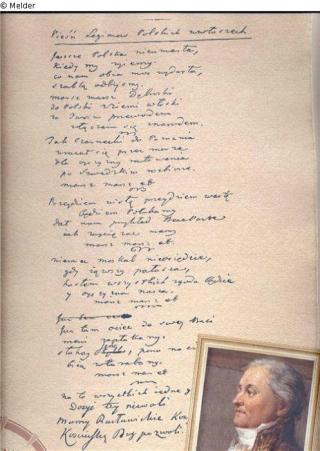 © Melder
Pieśń Legionów Polskich we Włoszech
Jeszcze Polska nieumarła,
kiedy my żyjemy.
co nam obca moc wydarła,
szablą odbijemy.
marsz marsz Dąbrowski
do Polski z ziemi włoski
za Twoim przewodem
złączem się z narodem.
Jak Czarnecki do Poznania
wracał się przez morze
dla ojczyzny ratowania
po szwedzkim rozbiorze.
marsz marsz et
Przejdziem Wisłę przejdziem Wartę
będziem Polakamy
dał nam przykład Bonaparte
jak zwyciężać mamy
marsz marsz et.
niemiec moskal nieosiędzie,
gdy jąwszy pałasza,
hasłem wszystkich zgoda będzie
y oyczyzna nasza.
marsz marsz et
Już tam ociec do swey Basi
mówi zapłakany:
słuchaj jeno, pono nasi
biją w tarabany.
marsz marsz et
na to wszystkich jedne
Dosyć tey niewoli
Mamy Racławickie
Kościuszkę Bóg pozwoli